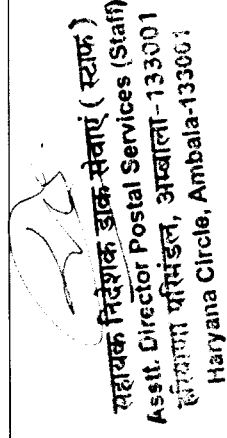 सहायक निदेशक डाक सेवाएं ( स्टाफ )
Asstt. Director Postal Services (Staff)
हरियाणा परिमंडल, अम्बाला-133001
Haryana Circle, Ambala-133001